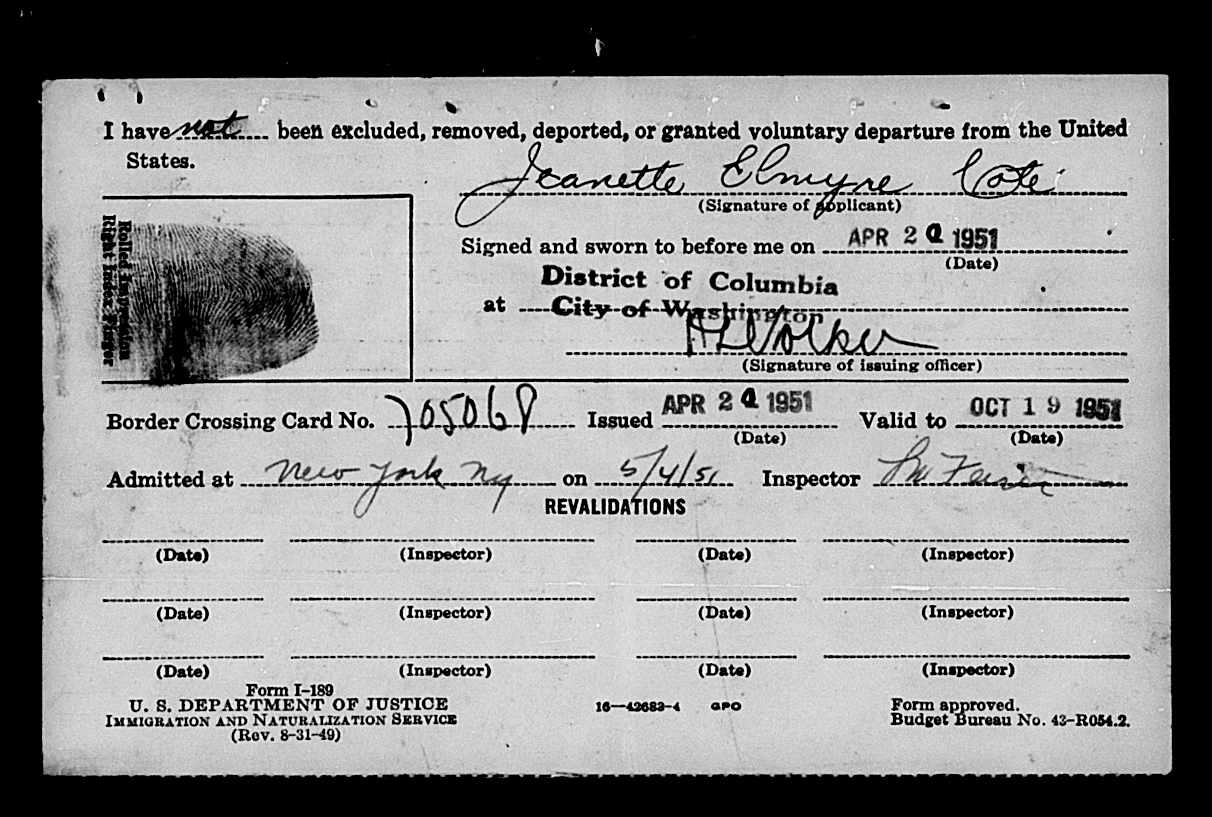 I have not been excluded, removed, deported, or granted voluntary departure from the United
States.
Jeanette Elmyre Cote
(Signature of applicant)
Rolled Impression
Right Index Finger
Signed and sworn to before me on APR 2 1951
(Date)
District of Columbia
at City of Washington
(Signature of issuing officer)
Border Crossing Card No. 705068 Issued APR 2 1951 Valid to OCT 19 1951
(Date) (Date)
Admitted at New York Ny on 5/4/51 Inspector
REVALIDATIONS
(Date) (Inspector) (Date) (Inspector)
(Date) (Inspector) (Date) (Inspector)
(Date) (Inspector) (Date) (Inspector)
Form I-189
U. S. DEPARTMENT OF JUSTICE
IMMIGRATION AND NATURALIZATION SERVICE
(Rev. 8-31-49)
16—42683-4 GPO
Form approved.
Budget Bureau No. 43-R054.2.